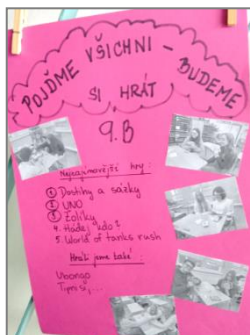 POJĎME VŠICHNI - BUDEME
SI HRÁT
9.B
Nejzajímavější hry:
1 Dostihy a sázky
2 UNO
3 Žolíky
4. Hádej kdo?
5. World of tanks rush
Hráli jsme také:
Ubongo
Tipni si,...